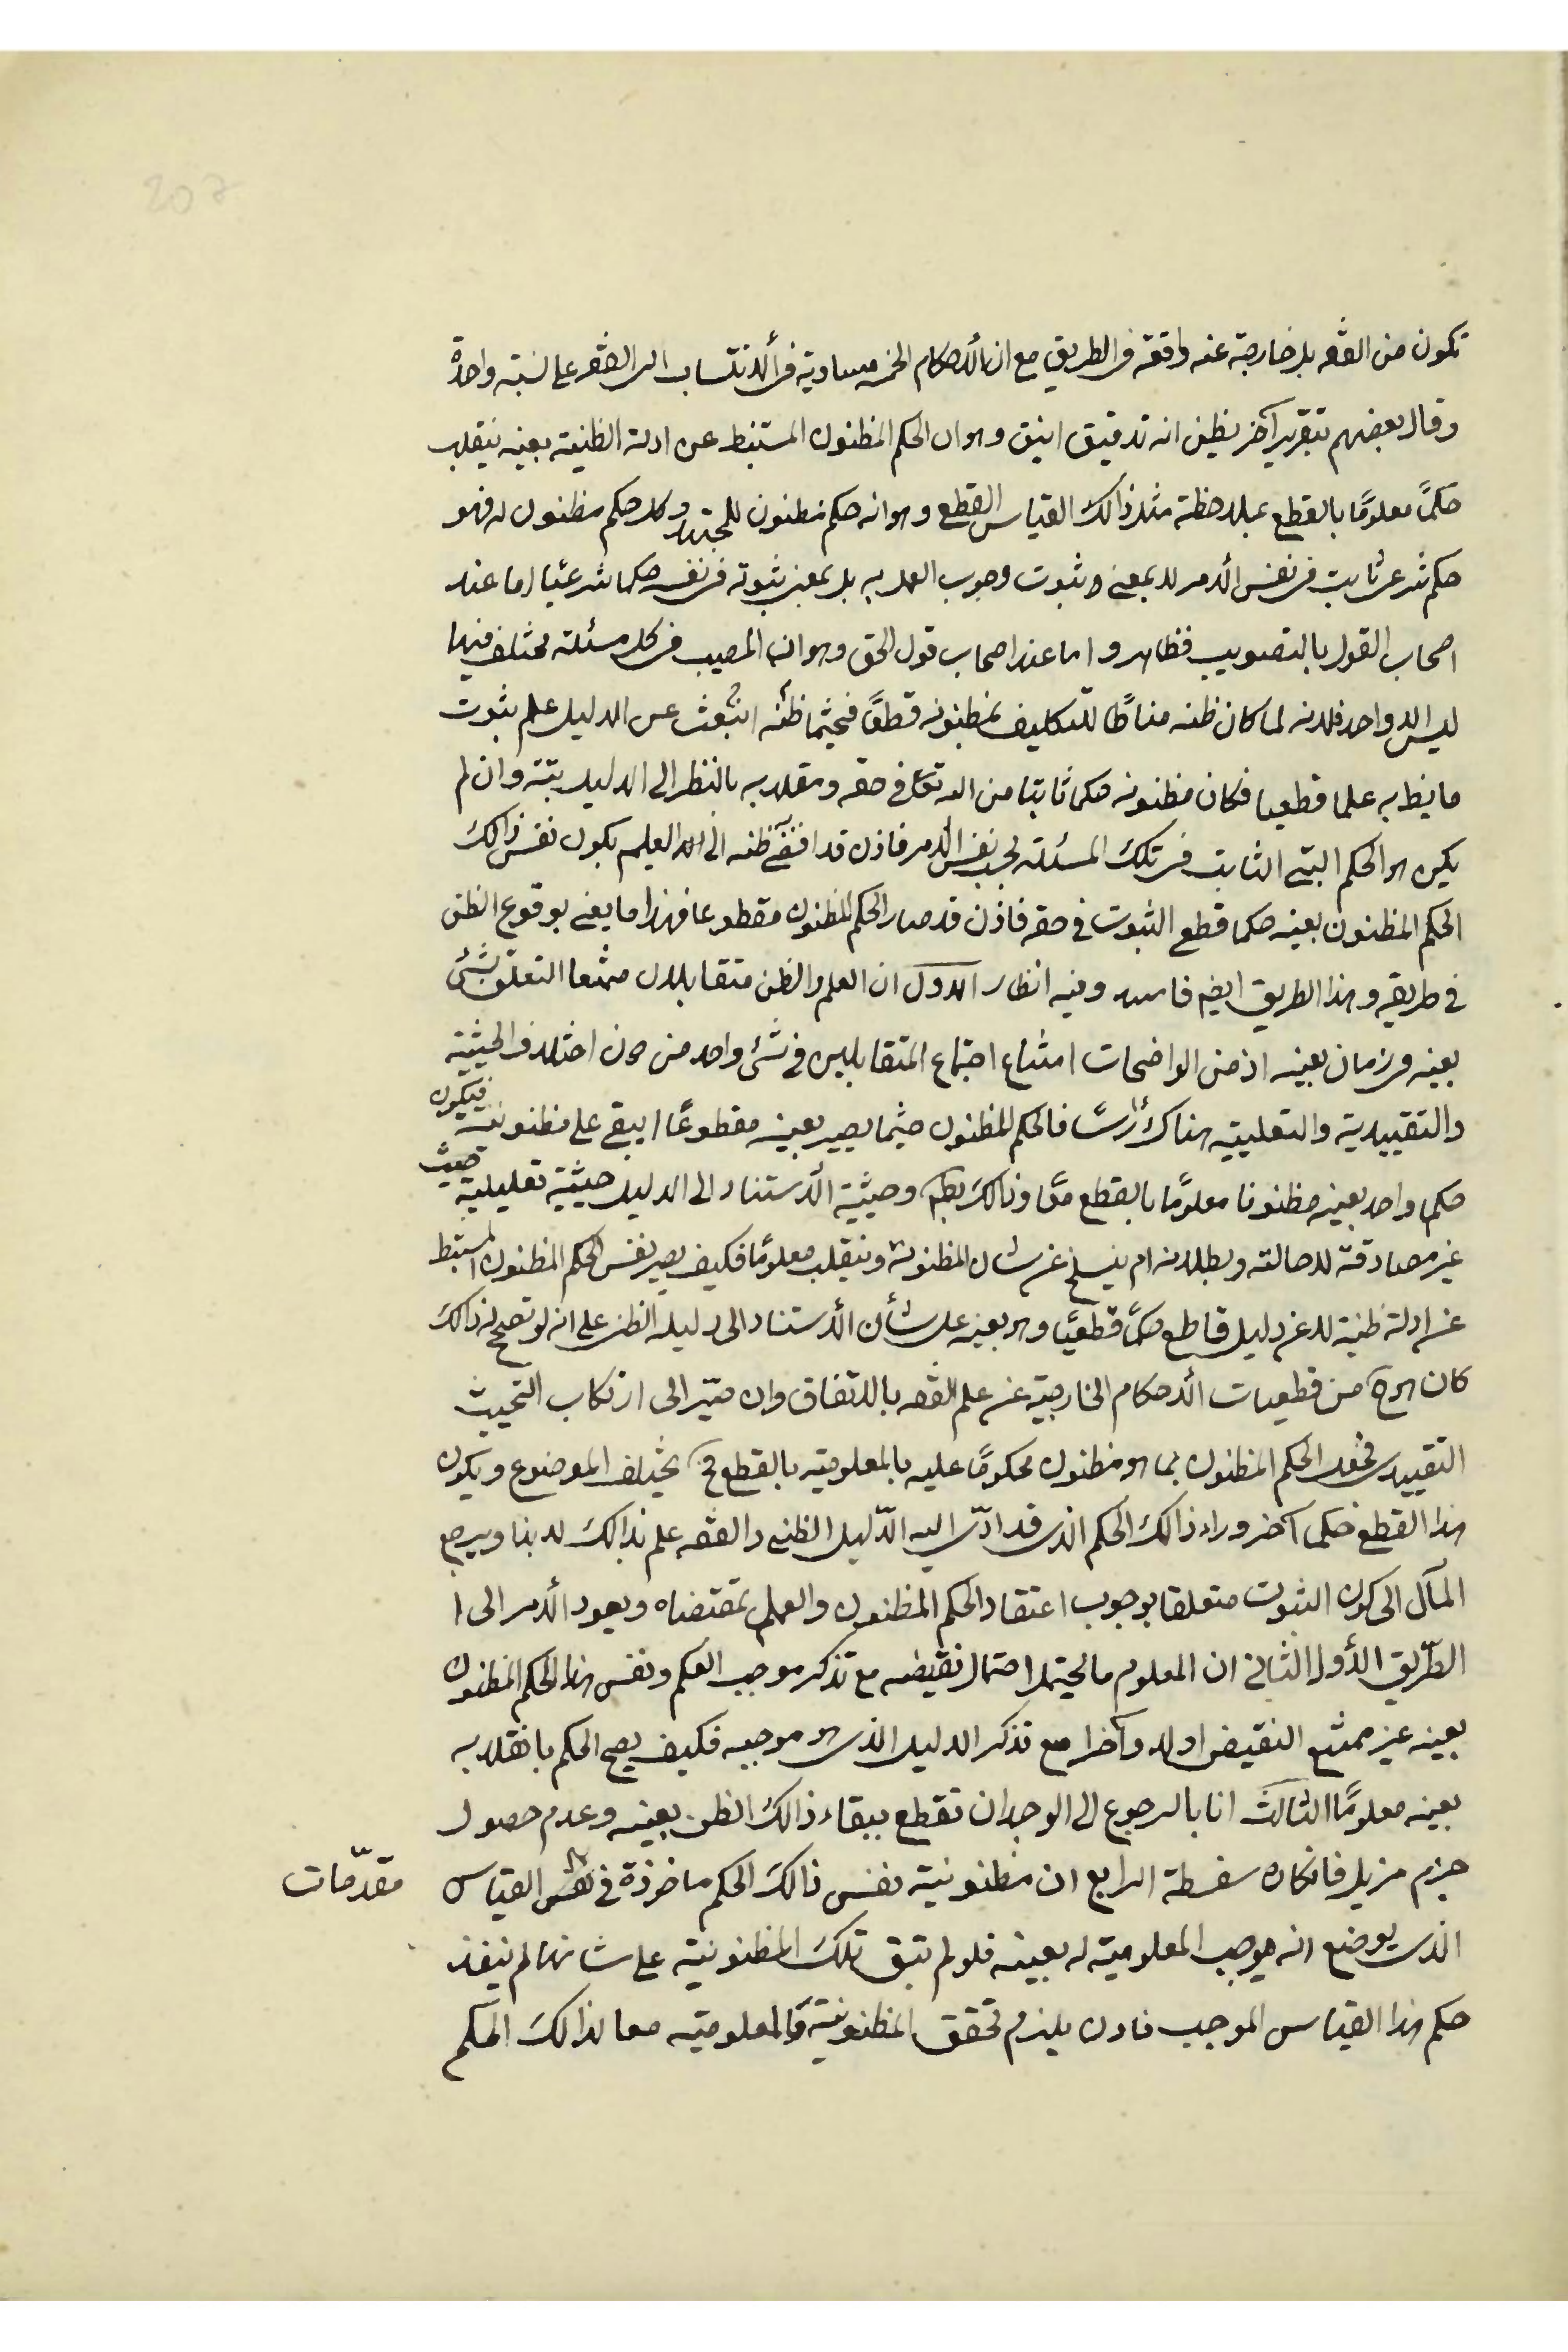 207
تكون من الفقه بل خارجة عنه واقعة فى الطريق مع ان الأحكام الخمسة مساوية فى الأنتساب الى الفقه على نسبة واحدة
وقال بعضهم بتقرير آخر يظن انه تدقيق انيق وهو ان الحكم المظنون المستنبط عن ادلته الظنية بعينه ينقلب
حكمًا معلومًا بالقطع بملاحظة مثل ذالك القياس القطع وهو انه حكم مظنون للمجتهد وكل حكم مظنون له فهو
حكم شرعى ثابت فى نفس الأمر لا بمعنى ثبوت وجوب العمل به بل بمعنى ثبوته فى نفسه حكما شرعيّا اما عند
اصحاب القول بالتصويب فظاهر و اما عند اصحاب قول الحق وهو ان المصيب فى كل مسئلة مختلف فيها
ليس الا واحد فلانه لما كان ظنه مناطًا للتكليف بمظنونه قطعًا فحيثما ظنّه انبعث عن الدليل علم ثبوت
ما يظن به علما قطعيا فكان مظنونه حكما ثابتا من الله تعالى فى حقه ومقلديه بالنظر الى الدليل بتة وان لم
يكن هو الحكم البتّى الثابت فى تلك المسئلة بحسب نفس الأمر فاذن قد افضى ظنه الى العلم بكون نفس ذالك
الحكم المظنون بعينه حكما قطع الثبوت فى حقه فاذن قد صار الحكم المظنون مقطوعا فهذا ما يعنى بوقوع الظن
فى طريقه وهذا الطريق ايضا فاسد وفيه انظار الاول ان العلم والظن متقابلان ممتنعا التعلق بشئ
بعينه فى زمان بعينه اذ من الواضحات امتناع اجتماع المتقابلين فى شئ واحد من دون اختلاف الحيثية
والتقييدية والتعليلية هناك رأسًا فالحكم المظنون حيثما يصير بعينه مقطوعًا ايبقى على مظنونيته فيكون
حكم واحد بعينه مظنونا معلومًا بالقطع معًا وذالك بطم وحيثية الأستناد الى الدليل حيثية تعليلية حيث
غير مصادقة لاحالته وبطلانه ام ينسلخ عن شان المظنونية وينقلب معلومًا فكيف يصير نفس الحكم المظنون المستنبط
عن ادلة ظنية لا عن دليل قاطع حكمًا قطعيًا وهو بعينه على شأن الأستناد الى دليله الظنى على انه لو تصحح له ذالك
كان هو ح من قطعيات الأحكام الخارجية عن علم الفقه بالاتفاق وان صيّر الى ارتكاب التحييث
التقييدى فجعل الحكم المظنون بما هو مظنون محكومًا عليه بالمعلومية بالقطع فح يختلف الموضوع ويكون
هذا القطع حكما آخر وراء ذالك الحكم الذى قد ادّى اليه الدّليل الظنى والفقه علم بذالك لا بهذا ويرجع
المآل الى كون الثبوت متعلقا بوجوب اعتقاد الحكم المظنون والعمل بمقتضاه ويعود الأمر الى ا
الطّريق الأول الثانى ان المعلوم ما لا يحتمل احتمال نقيضه مع تذكر موجب العلم ونفس هذا الحكم المظنون
بعينه غير ممتنع النقيض اولا وآخرا مع تذكر الدليل الذى هو موجبه فكيف يصح الحكم بانقلابه
بعينه معلومًا الثالث انا بالرجوع الى الوجدان نقطع ببقاء ذالك الظن بعينه وعدم حصول
جزم مزيل فانكاره سفسطة الرابع ان مظنونية نفس ذالك الحكم ماخوذة فى القياس
مقدّمات
الذى يوضع انه يوجب المعلومية له بعينه فلو لم تبق تلك المظنونية على شانها لم ينفذ
حكم هذا القياس الموجب فاذن يلزم تحقق المظنونية والمعلومية معا لذالك الحكم